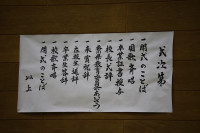 式次第
一開式のことば
一国歌斉唱
一卒業証書授与
一校長式辞
一来賓祝辞
一在校生送辞
一卒業生答辞
一校歌斉唱
一閉式のことば
以上